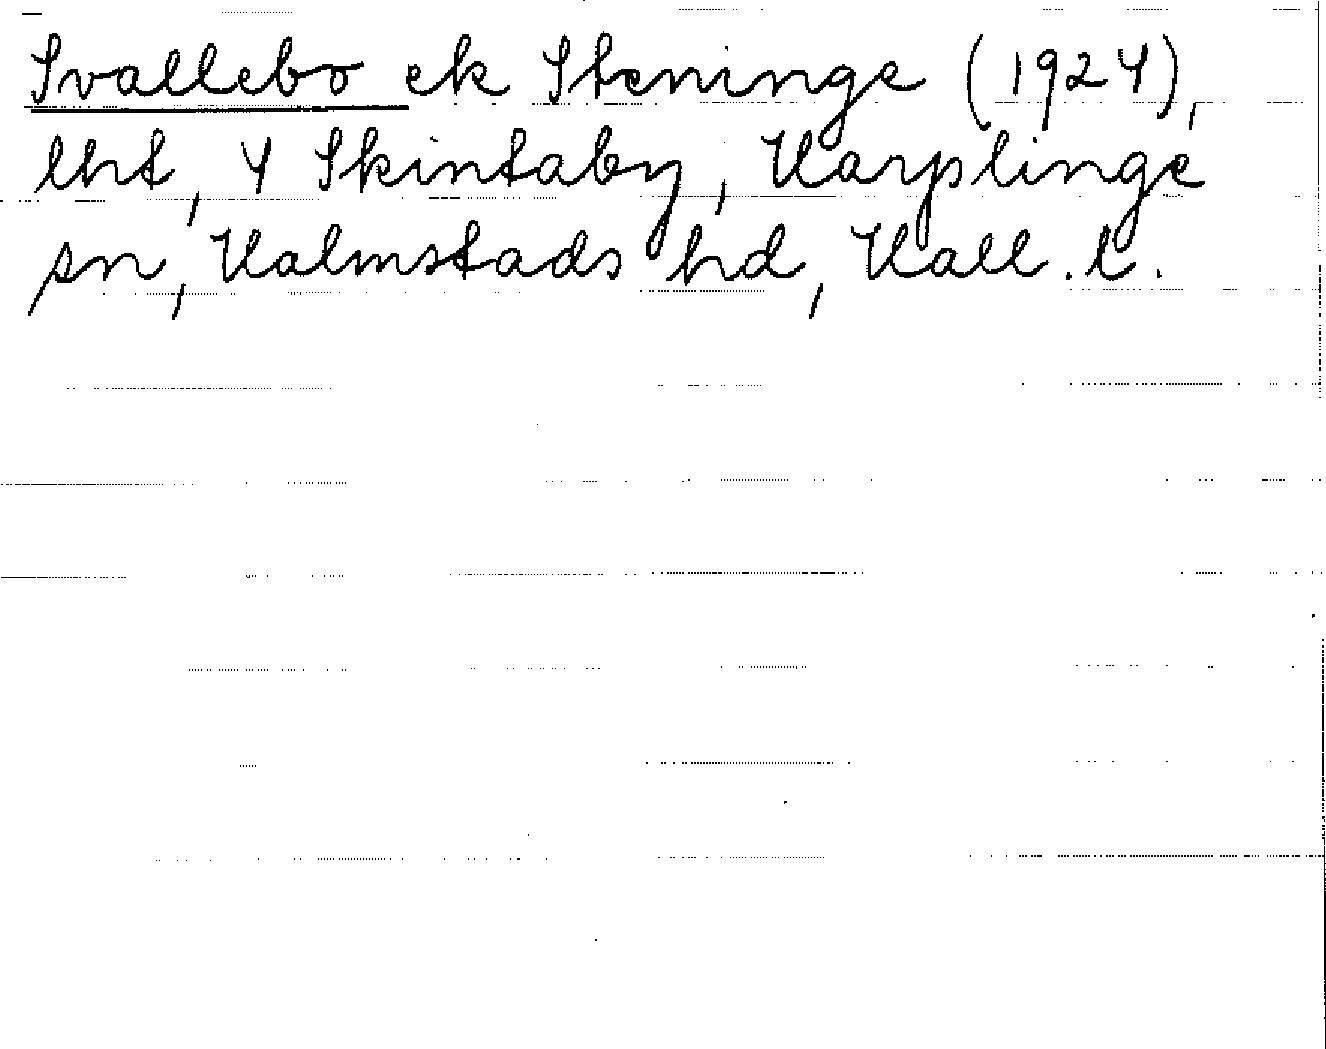 Svallebo ek Steninge (1924),
lht, 4 Skintaby, Harplinge
sn, Halmstads hd, Hall. l.